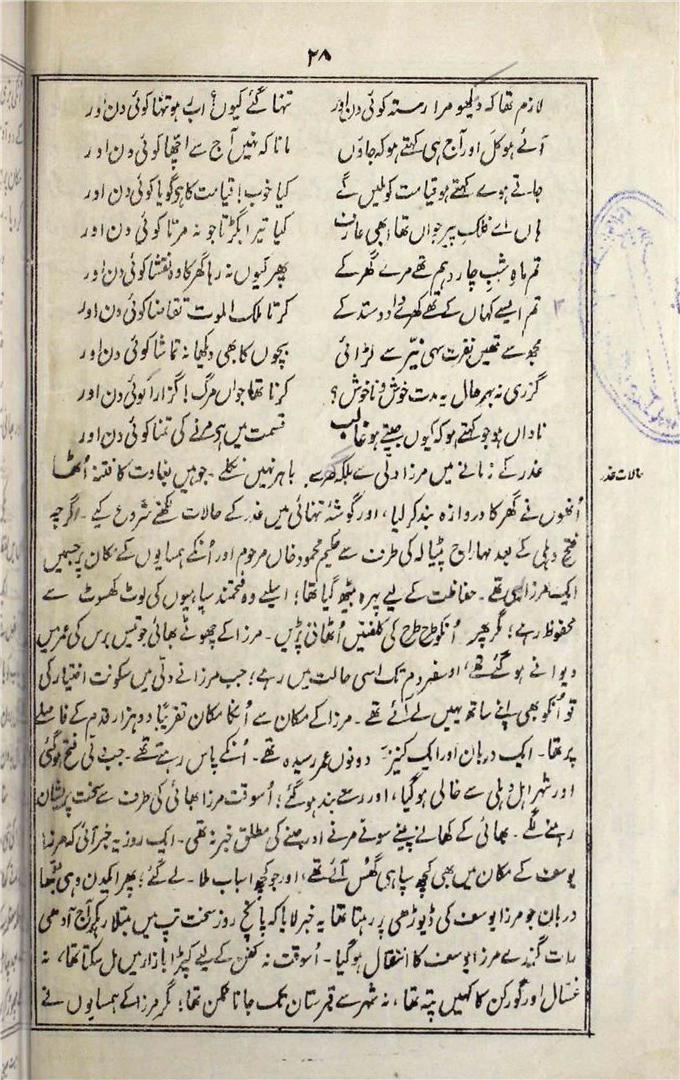 ۲۸
لازم تھا کہ دیکھو مرا رستہ کوئی دن اور تنہا گئے کیوں؟ اب رہو تنہا کوئی دن اور
آئے ہو کل اور آج ہی کہتے ہو کہ جاؤں مانا کہ نہیں آج سے اچھا کوئی دن اور
جاتے ہوے کہتے ہو قیامت کو ملیں گے کیا خوب! قیامت کا ہی گویا کوئی دن اور
ہاں اے فلکِ پیر جواں تھا ابھی عارف کیا تیرا بگڑتا جو نہ مرتا کوئی دن اور
تم ماہِ شبِ چار دہم تھے مرے گھر کے پھر کیوں نہ رہا گھر کا وہ نقشا کوئی دن اور
تم ایسے کہاں کے تھے کھرے داد و ستد کے کرتا ملک الموت تقاضا کوئی دن اور
مجھ سے تمھیں نفرت سہی نیّر سے لڑائی بچوں کا بھی دیکھا نہ تماشا کوئی دن اور
گزری نہ بہر حال یہ مدت خوش و ناخوش؟ کرنا تھا جواں مرگ! گزارا کوئی دن اور
ناداں ہو جو کہتے ہو کہ کیوں جیتے ہو غالب قسمت میں ہے مرنے کی تمنا کوئی دن اور
حالات غدر
غدر کے زمانے میں مرزا دلی سے بلکہ گھر سے باہر نہیں نکلے ۔ جوہیں بغاوت کا فتنہ اُٹھا
اُنھوں نے گھر کا دروازہ بند کر لیا، اور گوشۂ تنہائی میں غدر کے حالات لکھنے شروع کیے ۔ اگرچہ
فتحِ دہلی کے بعد مہاراج پٹیالہ کی طرف سے حکیم محمود خاں مرحوم اور اُنکے ہمسایوں کے مکان پر جسمیں
ایک مرزا بھی تھے ۔ حفاظت کے لیے پہرہ بیٹھ گیا تھا؛ اسلیے وہ فتحمند سپاہیوں کی لوٹ کھسوٹ سے
محفوظ رہے؛ مگر پھر اُنکو طرح طرح کی کلفتیں اُٹھانی پڑیں ۔ مرزا کے چھوٹے بھائی جو تیس برس کی عمر میں
دیوانے ہو گئے تھے، اور مرتے دم تک اسی حالت میں رہے؛ جب مرزا نے دلّی میں سکونت اختیار کی
تو اُنکو بھی اپنے ساتھ یہیں لے آئے تھے ۔ مرزا کے مکان سے اُنکا مکان تقریبًا دو ہزار قدم کے فاصلے
پر تھا ۔ ایک دربان اور ایک کنیز دونوں عمر رسیدہ تھے ۔ اُنکے پاس رہتے تھے ۔ جب دلی فتح ہو گئی
اور شہر اہلِ دہلی سے خالی ہو گیا، اور رستے بند ہو گئے؛ اُسوقت مرزا بھائی کی طرف سے سخت پریشان
رہنے لگے ۔ بھائی کے کھانے پینے سونے مرنے اور جینے کی مطلق خبر نہ تھی ۔ ایک روز یہ خبر آئی کہ مرزا
یوسف کے مکان میں بھی کچھ سپاہی گھس آئے تھے، اور جو کچھ اسباب ملا ۔ لے گئے؛ پھر ایکدن وہی بڈھا
دربان جو مرزا یوسف کی ڈیوڑھی پر رہتا تھا یہ خبر لایا کہ پانچ روز سخت تپ میں مبتلا رہکر آج آدھی
رات گئے مرزا یوسف کا انتقال ہو گیا ۔ اُسوقت نہ کفن کے لیے کپڑا بازار میں مل سکتا تھا، نہ
غسّال اور گورکن کا کہیں پتہ تھا، نہ شہر سے قبرستان تک جانا ممکن تھا؛ مگر مرزا کے ہمسایوں نے